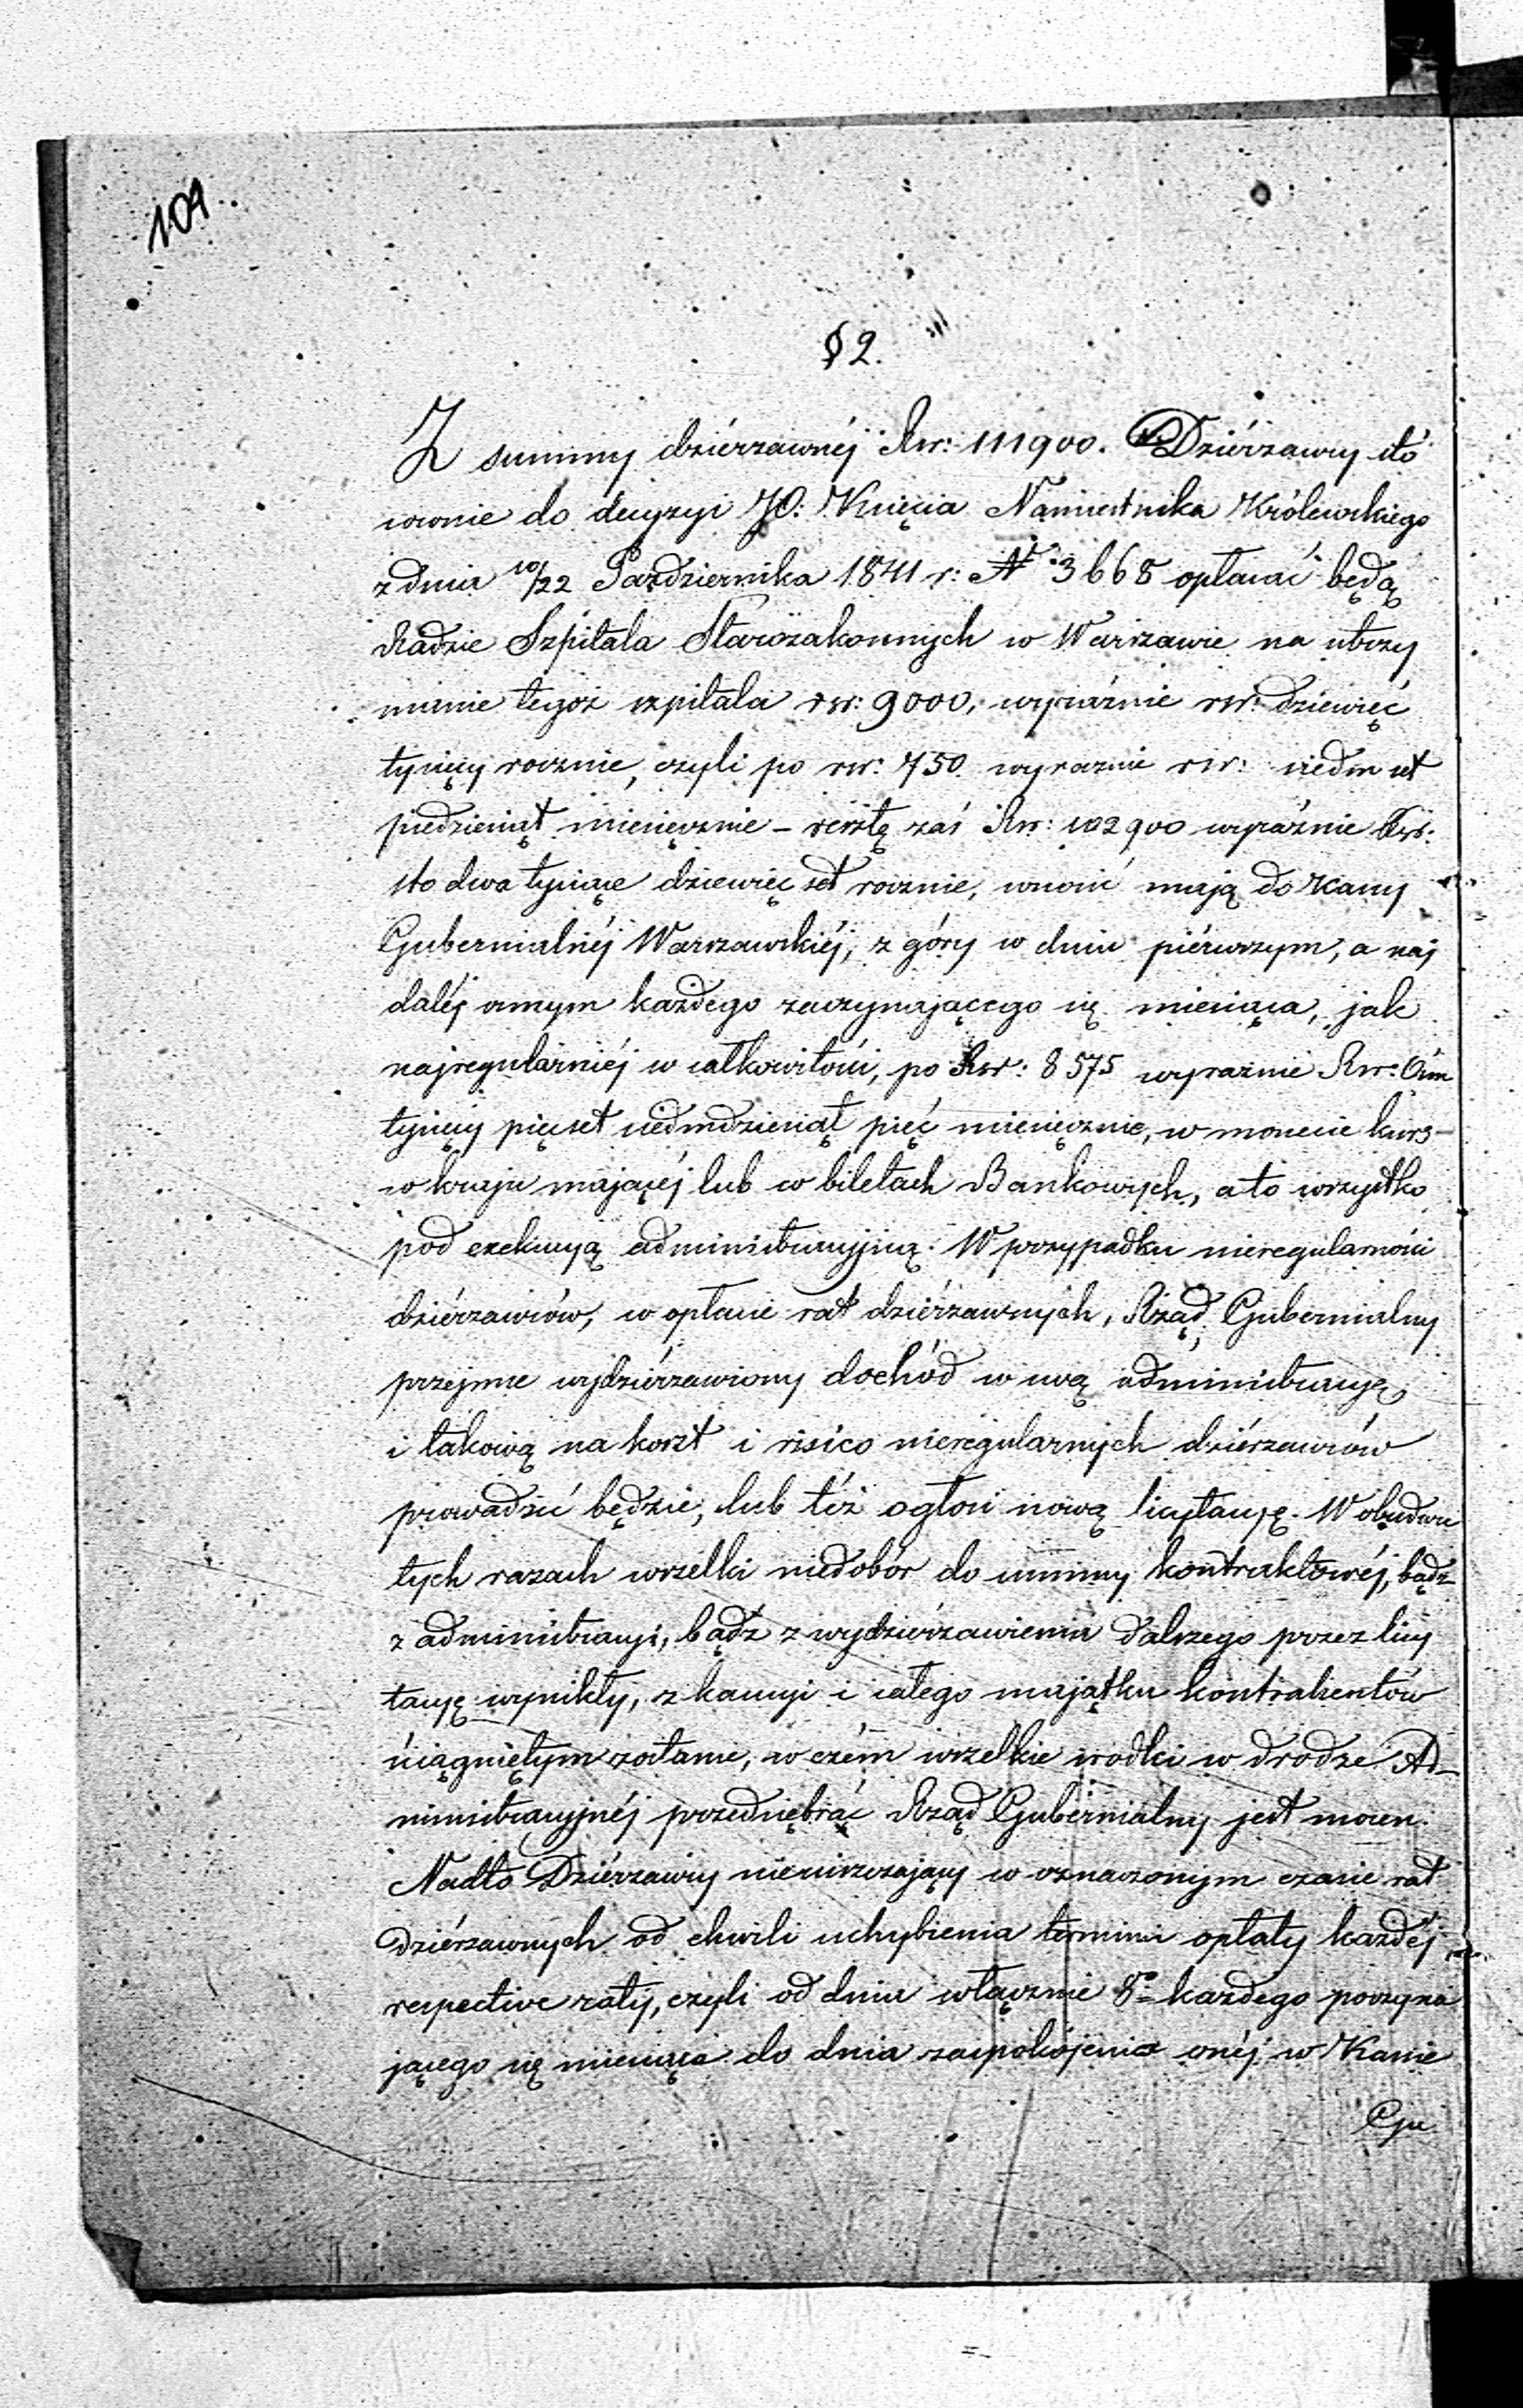 109
§ 2.
Z summy dziérzawnéj Rsr: 111900. Dziérzawcy sto
sownie do decyzyi JO: Xsięcia Namiestnika Królewskiego
z dnia 10/22 Października 1841 r: Nr 3668 opłacać będą
Radzie Szpitala Starozakonnych w Warszawie na utrzy
manie tegoż szpitala rsr: 9000, wyraźnie rsr: dziewięć
tysięcy rocznie, czyli po rsr: 750 wyraznie rsr: siedm set
piedziesiąt miesięcznie – resztę zaś Rsr: 102900 wyraźnie Rsr:
sto dwa tysiące dziewięć set rocznie, wnosić mają do Kassy
Gubernialnéj Warszawskiéj, z góry w dniu piérwszym, a naj
daléj osmym każdego zaczynającego się miesiąca, jak
najregularniéj w całkowitości, po Rsr: 8575 wyraźnie Rsr: Ośm
tysięcy pięćset siedmdziesiąt pięć miesięcznie, w monecie kurs–
w kraju mającéj lub w biletach Bankowych, a to wszystko
pod exekucyą administracyjną. W przypadku nieregularności
dziérzawców, w opłacie rat dziérzawnych, Rząd Gubernialny
przejmie wydziérzawiony dochód w swą administracyę
i takową na koszt i risico nieregularnych dziérzawców
prowadzić będzie, lub téż ogłosi nową licytacyę. W obudwu
tych razach wszelki niedobór do summy kontraktowéj, bądz
z administracyi, bądź z wydzierzawienia dalszego przez licy
tacyę wynikły, z kaucyi i całego majątku kontrahentów
ściągniętym zostanie, w czém wszelkie srodki w drodze Ad–
ministracyjnéj przedsiębrać Rząd Gubernialny jest mocen.
Nadto Dziérzawcy nieuiszczający w oznaczonym czasie rat
Dziérzawnych od chwili uchybienia terminu opłaty każdéj
respective raty, czyli od dnia włącznie 8o każdego poczyna
jącego się miesiąca do dnia zaspokojenia onéj w Kassie
Gu